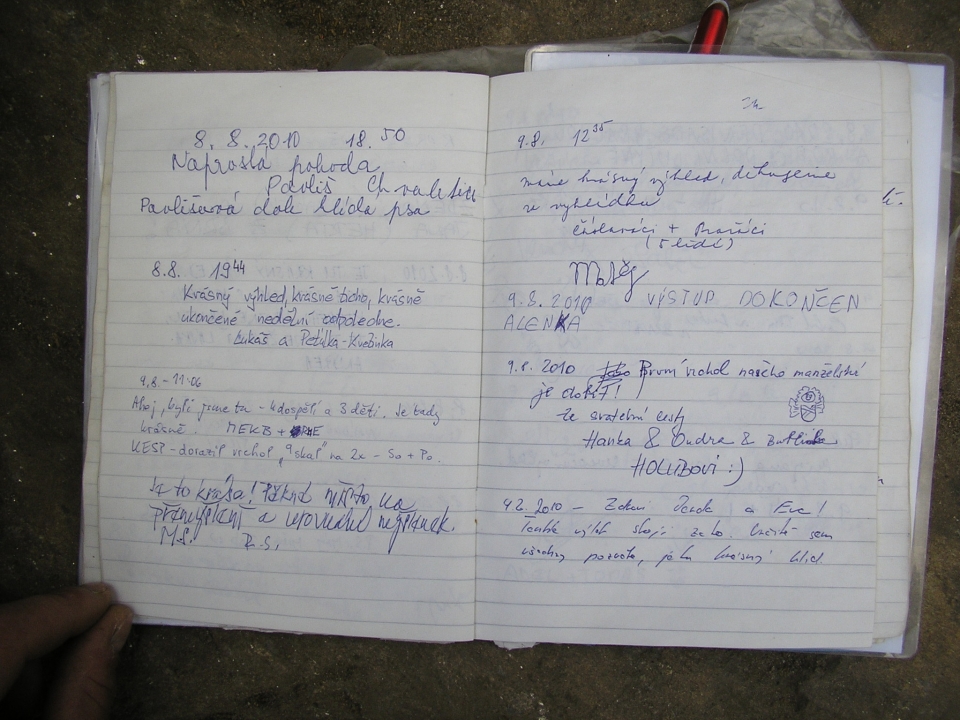 8. 8. 2010 18.50
Naprostá pohoda
Pavliš Chvaletice
Pavlišová dole hlídá psa
8.8. 19 44
Krásný výhled, krásné ticho, krásně
ukončené nedělní odpoledne.
Lukáš a Petulka-Květinka
9.8 - 11:06
Ahoj, byli jsme tu - 4 dospělí a 3 děti. Je tady
krásně. MEKB +
KESP - dorazil vrchol, "skal" na 2x - So + Po.
Je to krása! Pěkné místo na
přemýšlení a
M.S. R.S.
9.8. 12 35
máme krásný výhled, děkujeme
ze vyhlídku
Čáslaváci + Pražáci
(5 lidí)
9.8.2010 VÝSTUP DOKONČEN
ALENKA
9.8. 2010 První vrchol našeho manželské
je dobyt!
Ze svatební cesty
Hanka & Ondra &
HOLUBOVI :)
2010 - a Eva!
výhled stojí za to.
všechny pozvala, jako krásný klid.